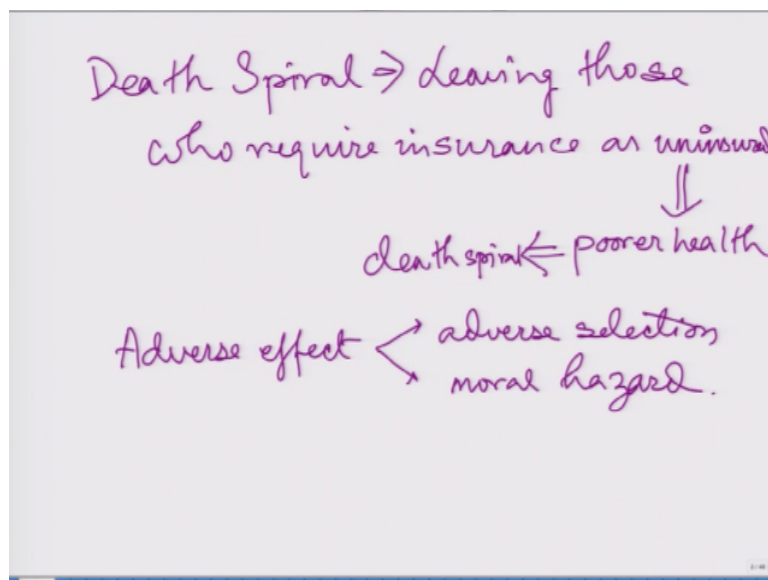 Death Spiral ⇒ Leaving those
who require insurance as uninsured
⇓
death spiral ⇐ poorer health
Adverse effect < adverse selection
moral hazard.